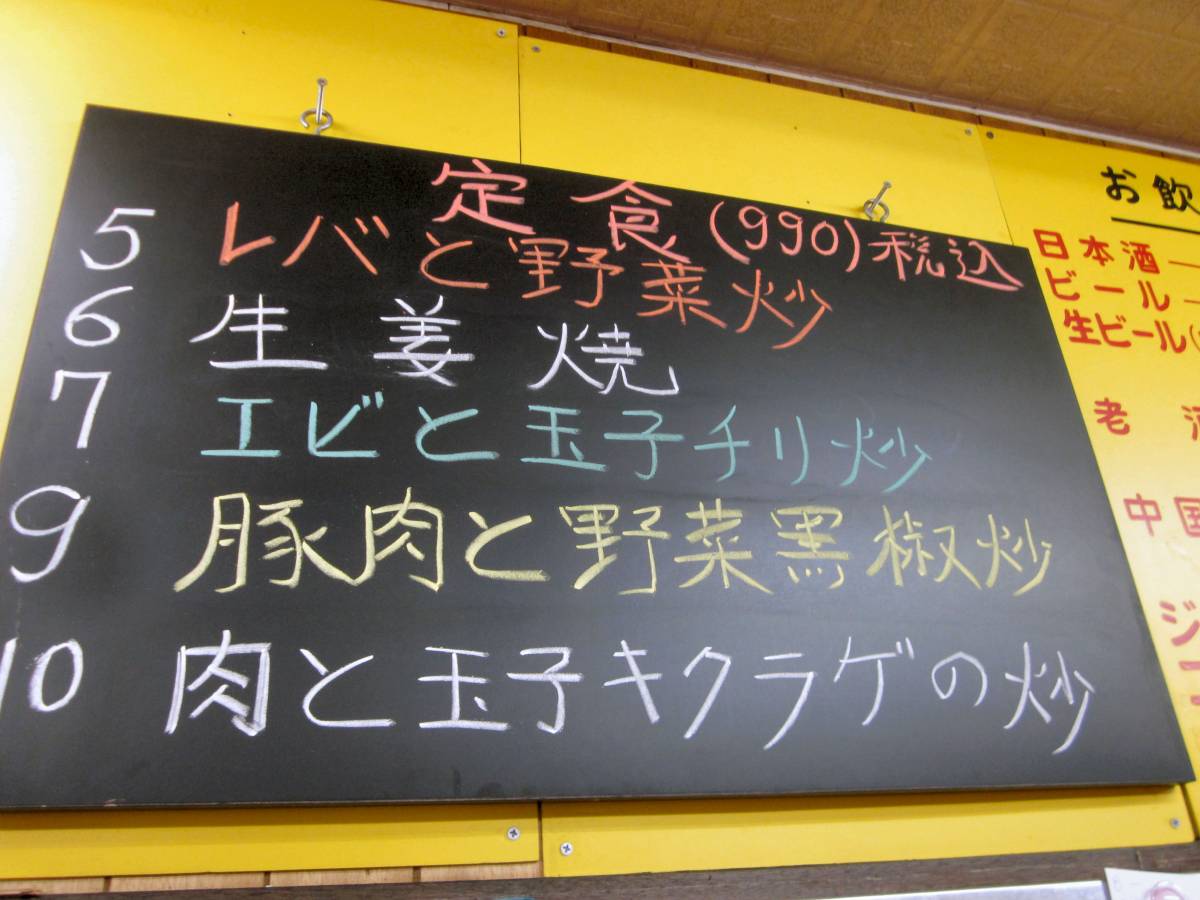 定食(990)税込
5 レバと野菜炒
6 生姜焼
7 エビと玉子チリ炒
9 豚肉と野菜黒椒炒
10 肉と玉子キクラゲの炒
お飲
日本酒
ビール
生ビール(
老酒
中国
ジ